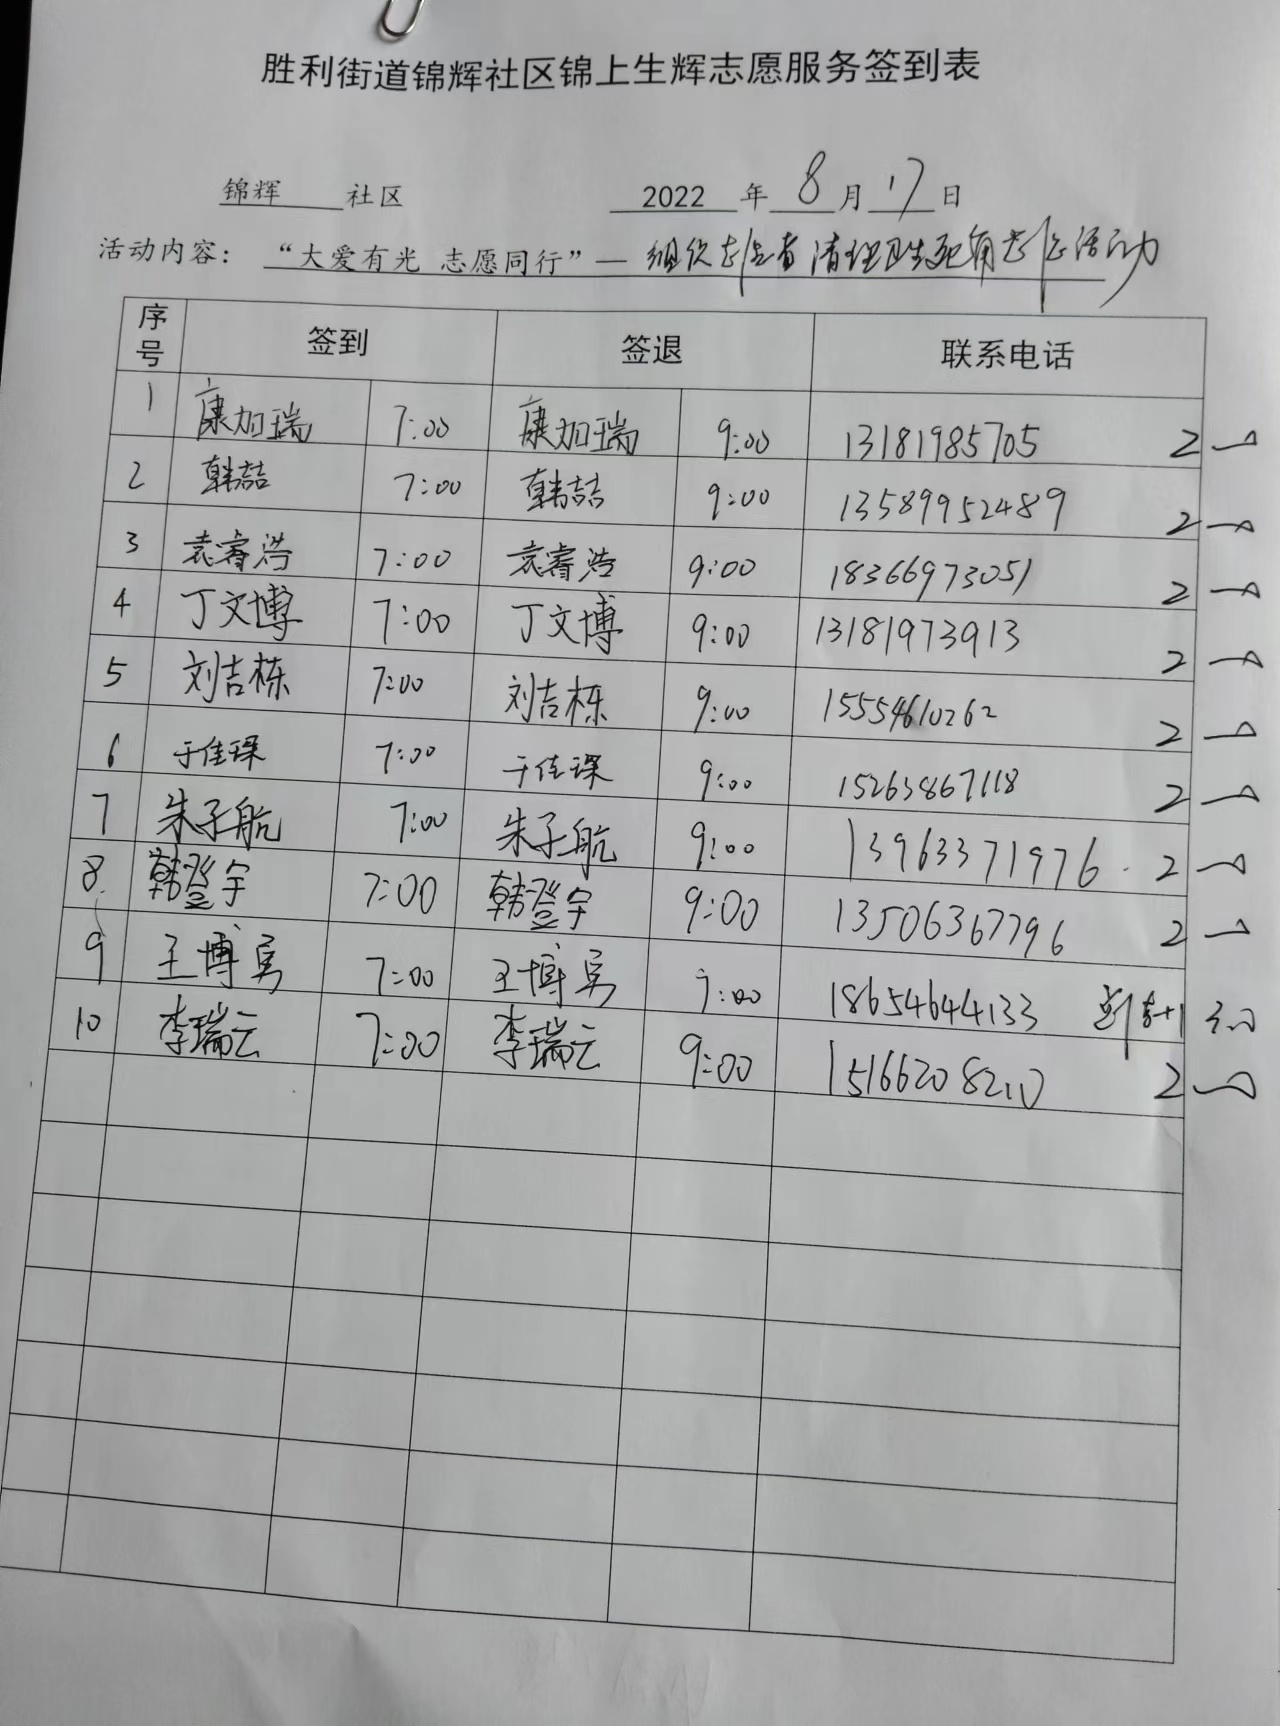 胜利街道锦辉社区锦上生辉志愿服务签到表
锦辉 社区 2022 年 8 月 17 日
活动内容：“大爱有光 志愿同行”— 组织志愿者清理卫生死角志愿活动
序号 签到 签退 联系电话
1 康加瑞 7:00 康加瑞 9:00 13181985705 2
2 韩喆 7:00 韩喆 9:00 13589952489 2
3 袁睿浩 7:00 袁睿浩 9:00 18366973051 2
4 丁文博 7:00 丁文博 9:00 13181973913 2
5 刘吉栋 7:00 刘吉栋 9:00 15554610262 2
6 于佳琛 7:00 于佳琛 9:00 15263867118 2
7 朱子航 7:00 朱子航 9:00 13963371976 2
8 韩登宇 7:00 韩登宇 9:00 13506367796 2
9 王博勇 7:00 王博勇 9:00 18654644133
10 李瑞云 7:00 李瑞云 9:00 15166208210 2